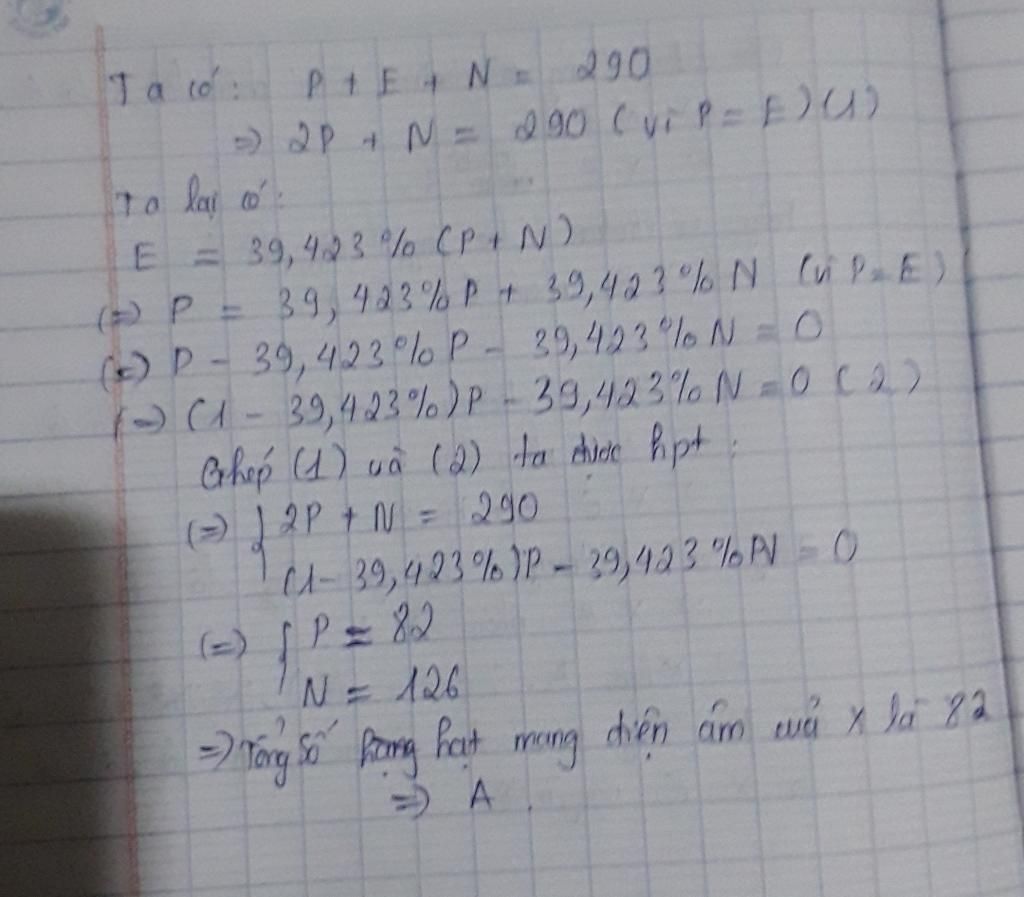 Ta có: P + E + N = 290
=> 2P + N = 290 (vì P = E) (1)
Ta lại có:
E = 39,423% (P + N)
(=) P = 39,423% P + 39,423% N (vì P = E)
(=) P - 39,423% P - 39,423% N = 0
(=) (1 - 39,423%)P - 39,423% N = 0 (2)
Ghép (1) và (2) ta được hpt:
(=) { 2P + N = 290
(1 - 39,423%)P - 39,423% N = 0
(=) { P = 82
N = 126
=> Tổng số hạt mang điện âm của X là 82
=> A.